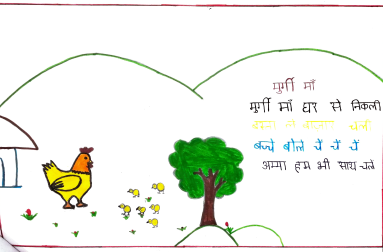 मुर्गी माँ
मुर्गी माँ घर से निकली
बाज़ार चली
बच्चे बोले चें चें चें
अम्मा हम भी साथ चलें